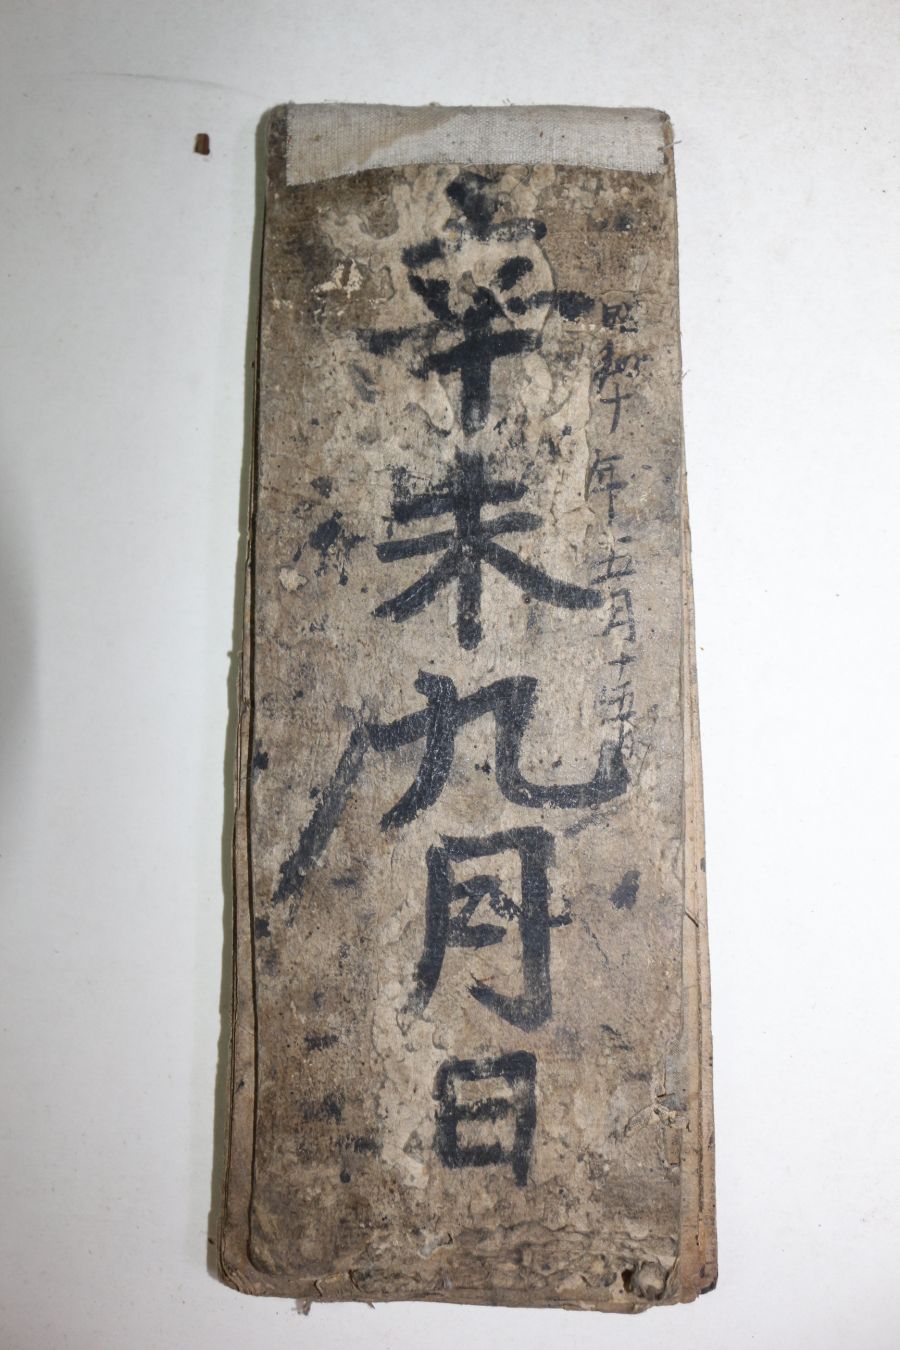 昭和十年五月十五日
辛未九月日